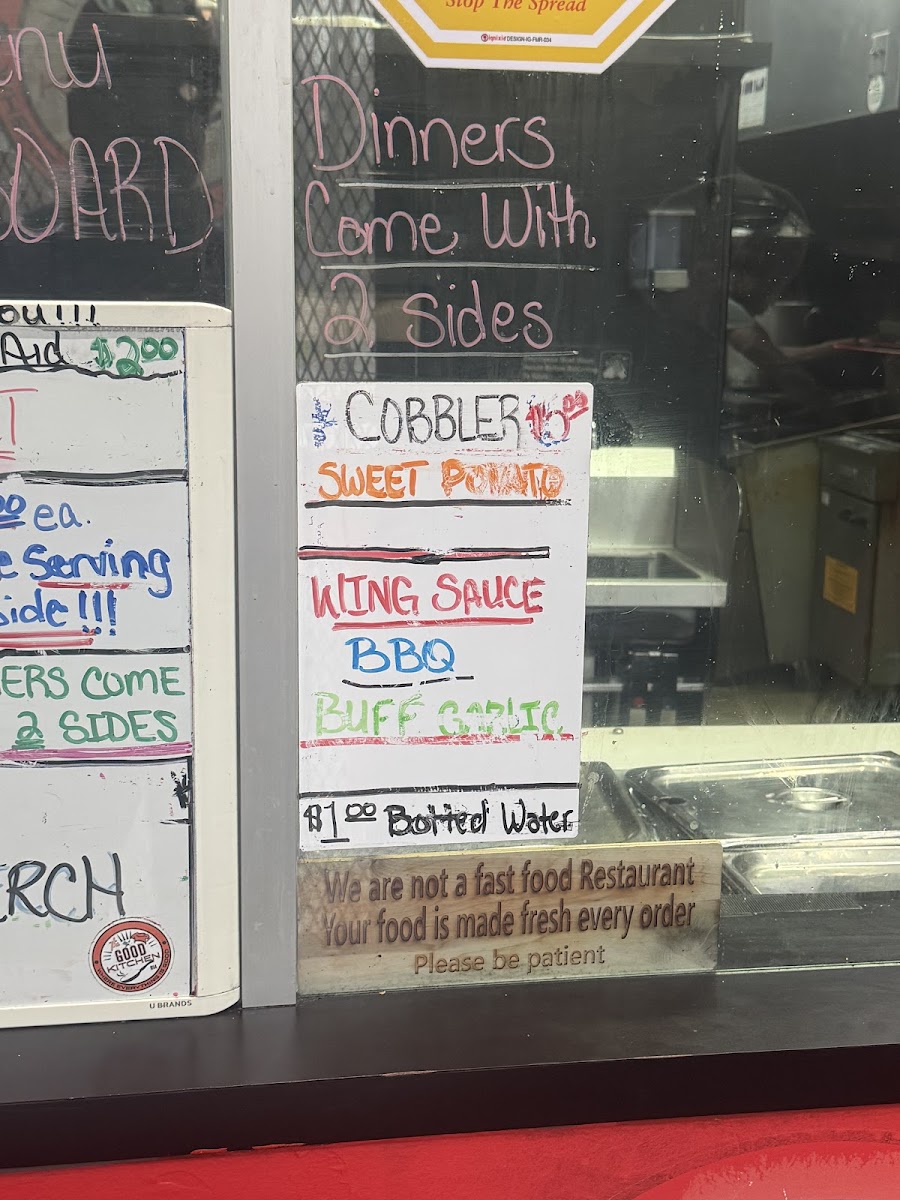 Stop The Spread
Dinners
Come With
2 Sides
COBBLER
SWEET POTATO
WING SAUCE
BBQ
BUFF GARLIC
$1.00 Bottled Water
We are not a fast food Restaurant
Your food is made fresh every order
Please be patient
OARD
OU!!!
Aid $2.00
ea.
Serving
side!!!
ERS COME
2 SIDES
ERCH
GOOD
KITCHEN
U BRANDS